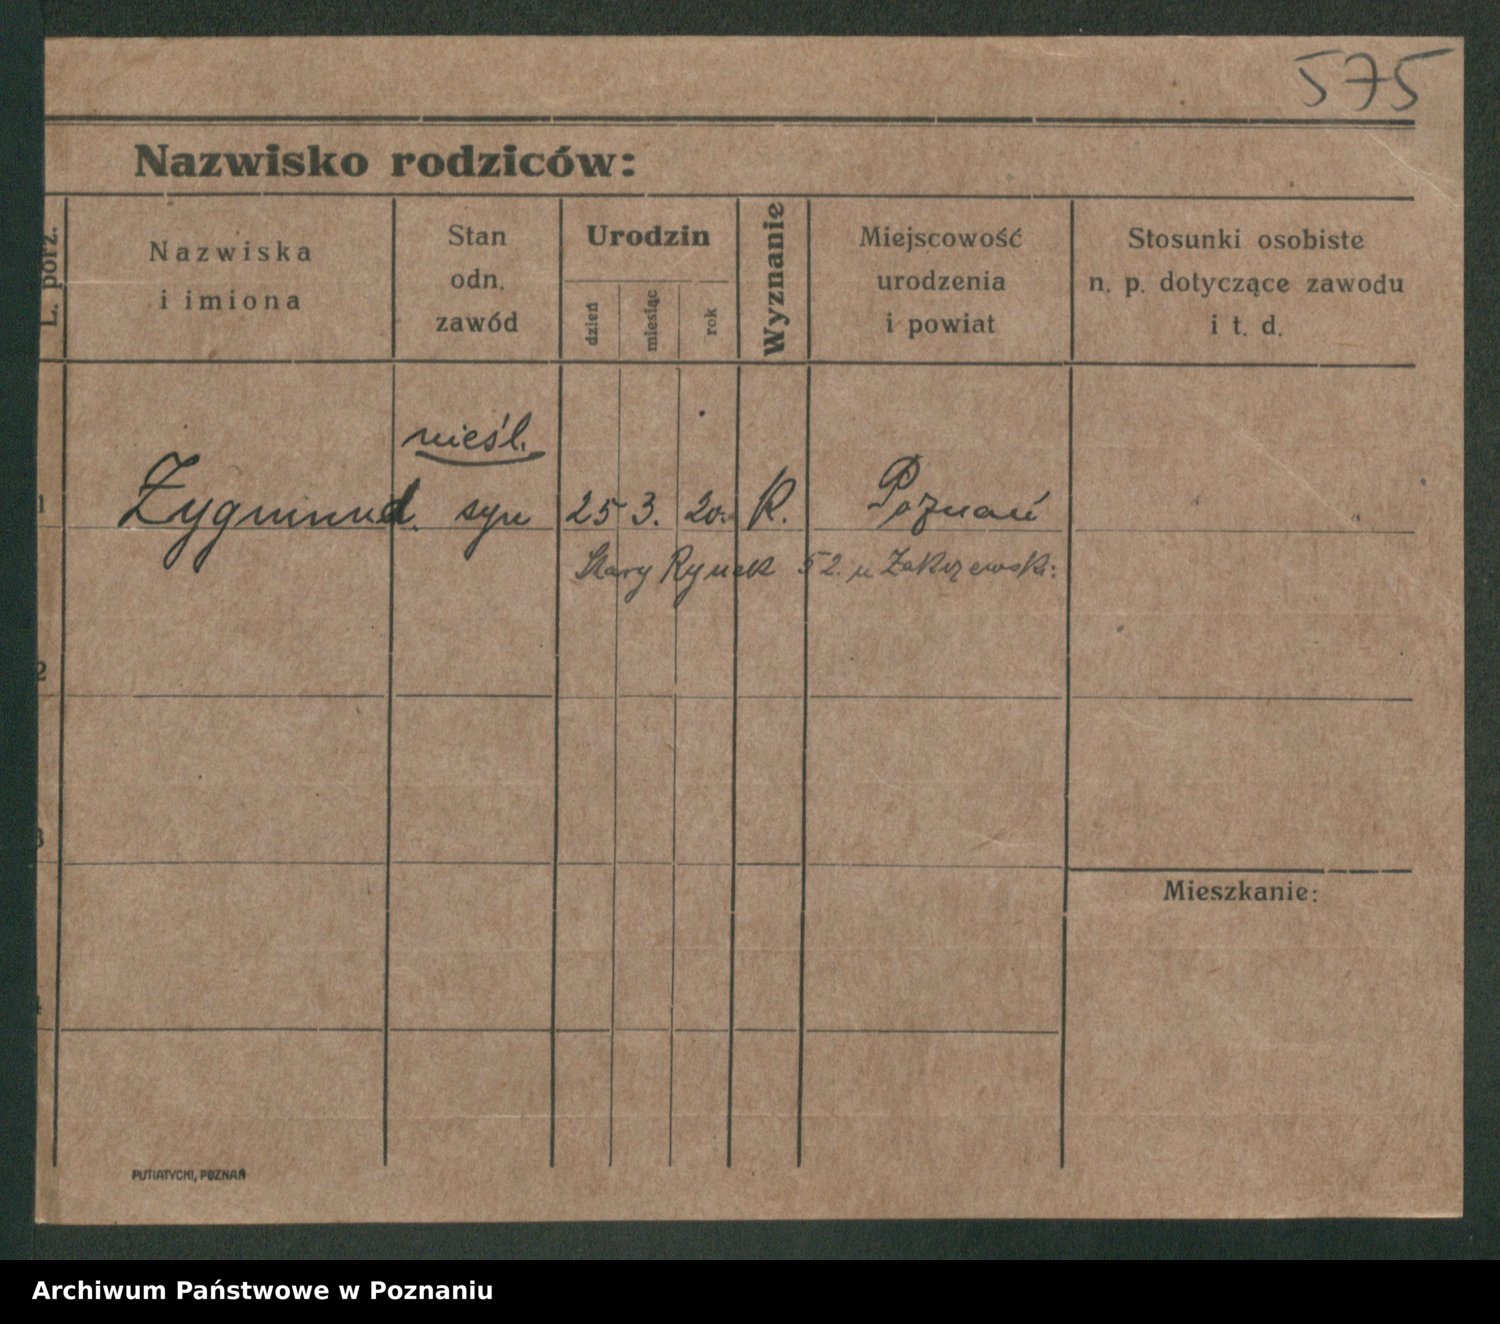 575
Nazwisko rodziców:
L. porz.
Nazwiska
i imiona
Stan
odn.
zawód
Urodzin
dzień
miesiąc
rok
Wyznanie
Miejscowość
urodzenia
i powiat
Stosunki osobiste
n. p. dotyczące zawodu
i t. d.
nieśl.
1 Zygmund. syn 25 3. 20. R. Poznań
Stary Rynek 52. u Zakrzewski:
2
3
4
Mieszkanie:
PUTIATYCKI, POZNAŃ
Archiwum Państwowe w Poznaniu